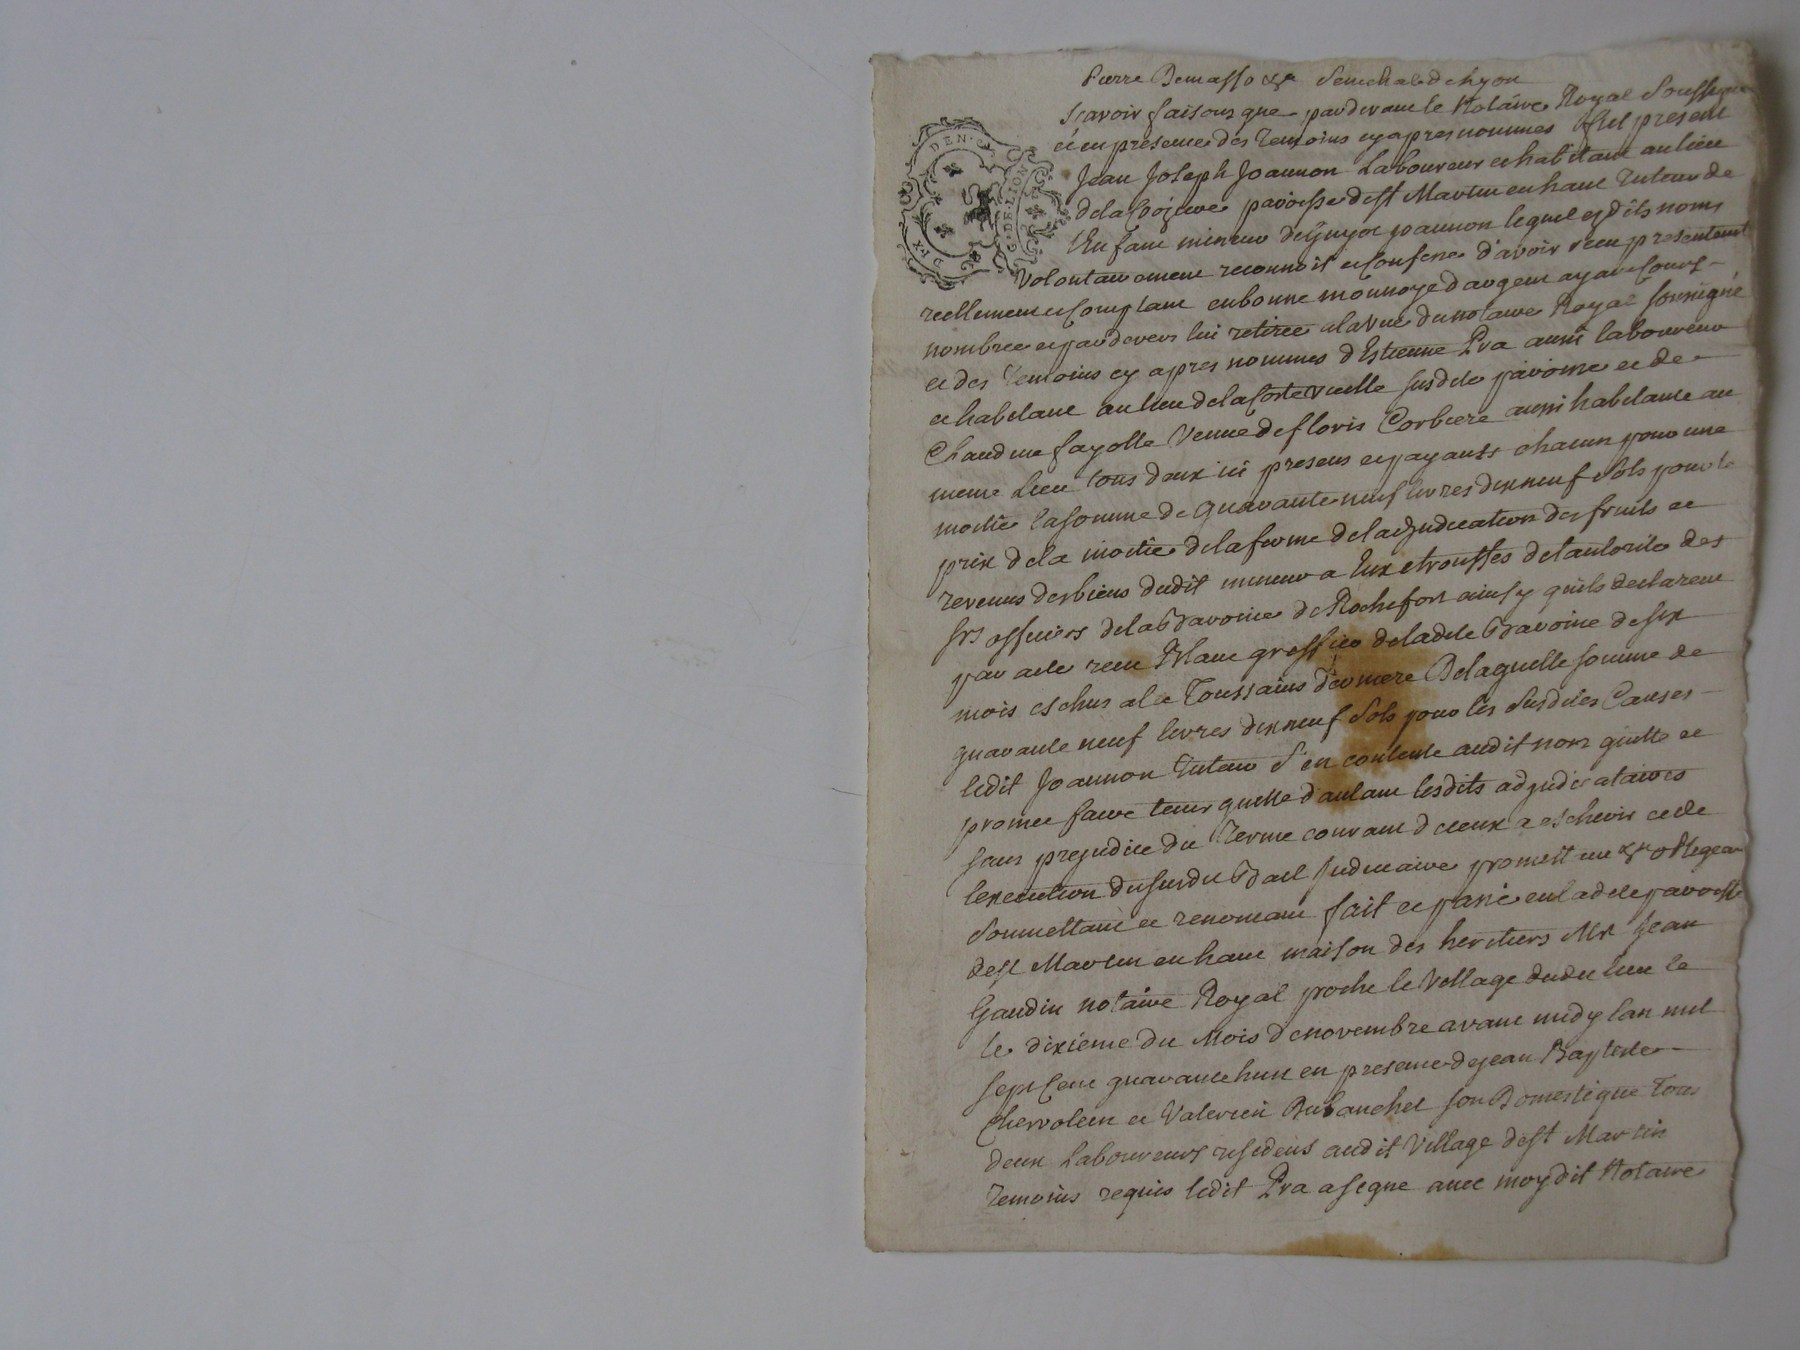 Pierre Demasso &ca Senechal de Lyon
scavoir faisons que pardevant le Notaire Royal soussigné
et en presence des temoins cy apres nommes fut present
Jean Joseph Joannon Laboureur et habitant au lieu
de la paroisse de st Martin en haut tuteur de
l'enfant mineur de joannon lequel esdits noms
volontairement reconnoit et confesse d'avoir receu presentement
reellement et comptant en bonne monnoye d'argent ayant cours
nombrée et pardevers lui retirée a la vue du notaire Royal soussigné
et des temoins cy apres nommes d'Estienne Pra aussi laboureur
et habitant au lieu de la Coste vieille susdite paroisse et de
Claudine fayolle veuve de floris Corbiere aussi habitante au
meme lieu tous deux ici presens et payants chacun pour une
moitié la somme de quarante neuf livres dix neuf sols pour le
prix de la moitié de la ferme de l'adjudication des fruits et
revenus des biens dudit mineur a Eux etroussés de l'autorité des
srs officiers de la Baronnie de Rochefort ainsy qu'ils declarent
par acte receu Blanc greffier de ladite Baronie de six
mois eschus a la Toussains derniere De laquelle somme de
quarante neuf livres dix neuf sols pour les susdites Causes
ledit Joannon tuteur s'en contente audit nom quitte et
promet faire tenir quitte d'autant lesdits adjudicataires
sans prejudice du terme courant d'iceux a escheoir et de
l'execution du susdit Bail judiciaire promettant &ca obligeant
soumettant et renonceant fait et passé en ladite paroisse
de st Martin en haut maison des heritiers Me Jean
Gaudin notaire Royal proche le village dudit lieu le
le dixieme du Mois de novembre avant midy l'an mil
sept cent quarante huit en presence de jean Baptiste
et Valerien son Domestique tous
deux Laboureurs residens audit village de st Martin
temoins requis ledit Pra a signé avec moydit Notaire
DEN
G. DE LION